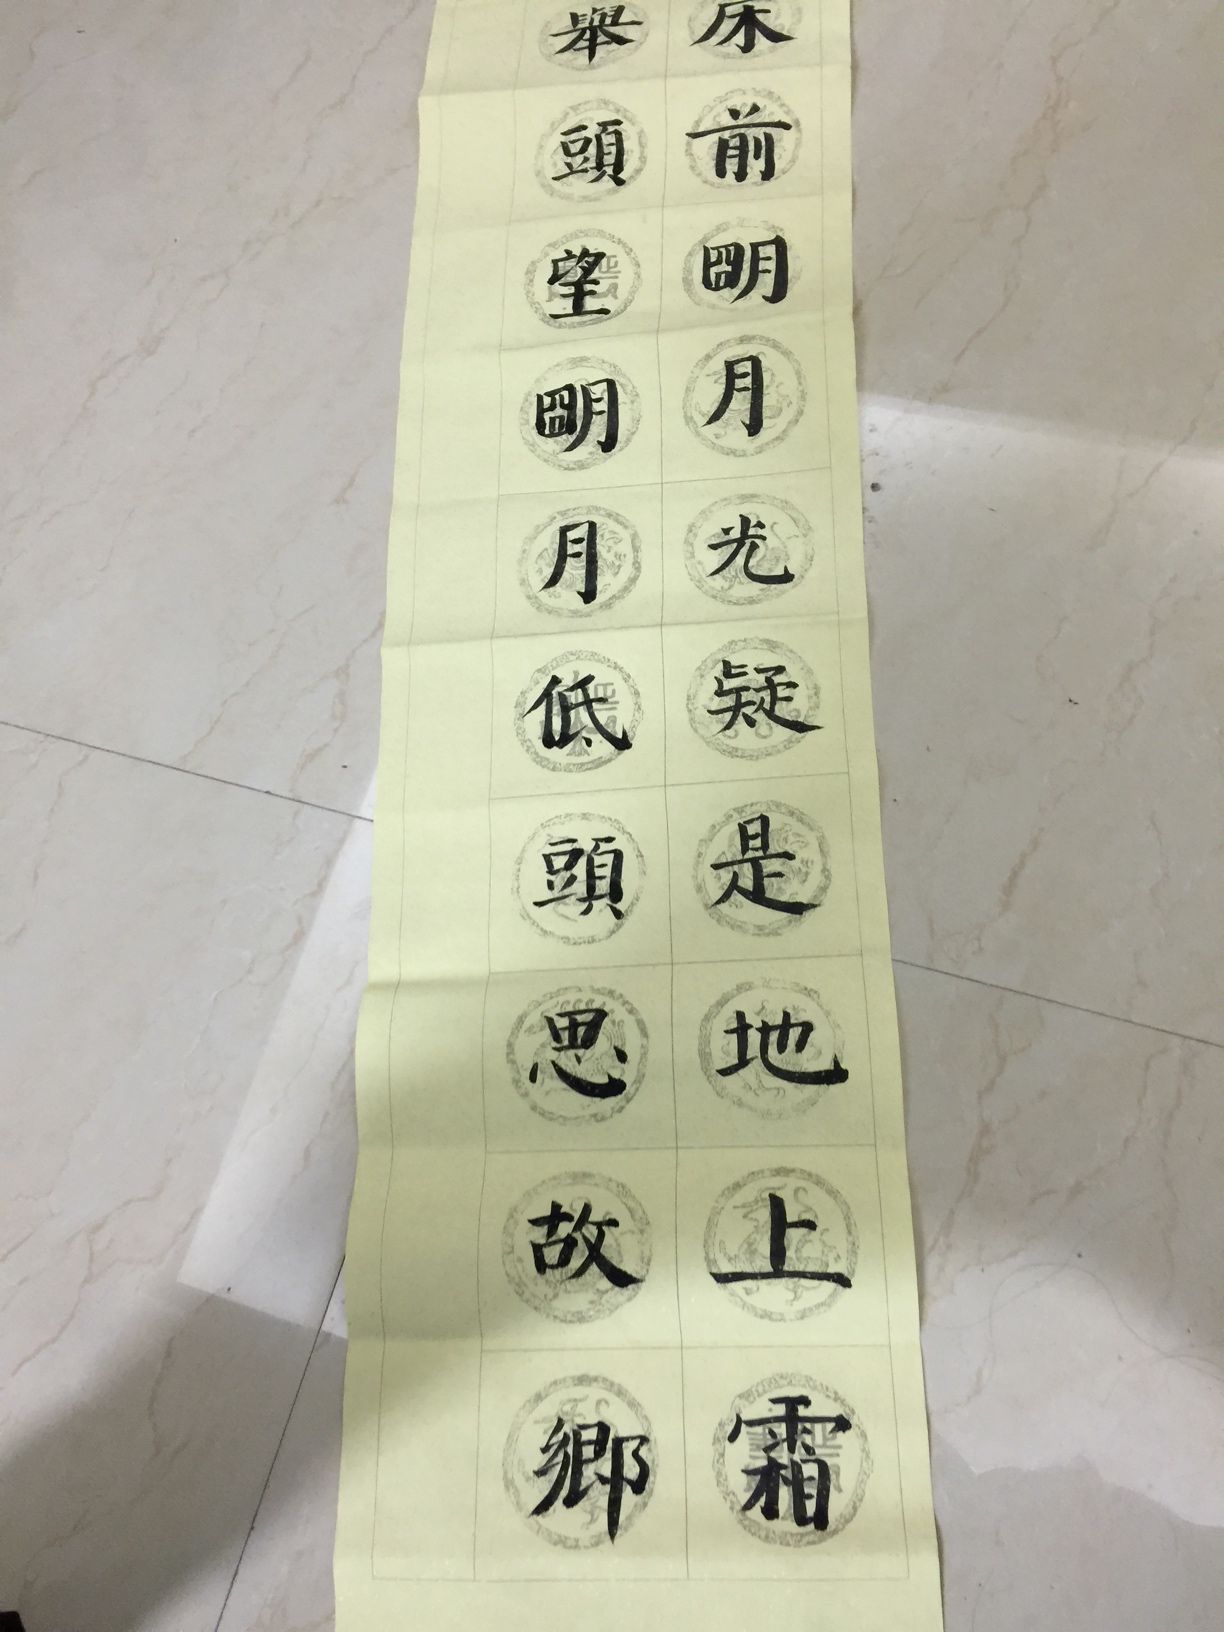 床前明月光疑是地上霜
舉頭望明月低頭思故鄉